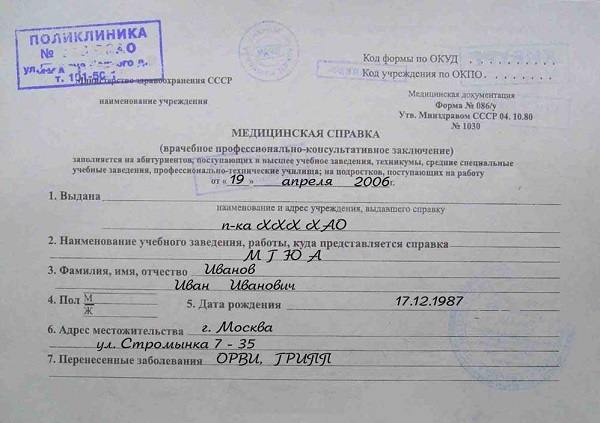 ПОЛИКЛИНИКА
№ АО
ул.
т. 101-50-
Министерство здравоохранения СССР
наименование учреждения
Код формы по ОКУД . . . . . . . . . .
Код учреждения по ОКПО . . . . . . . .
Медицинская документация
Форма № 086/у
Утв. Минздравом СССР 04. 10.80
№ 1030
МЕДИЦИНСКАЯ СПРАВКА
(врачебное профессионально-консультативное заключение)
заполняется на абитуриентов, поступающих в высшее учебное заведения, техникумы, средние специальные
учебные заведения, профессионально-технические училища; на подростков, поступающих на работу
от « 19 » апреля 2006г.
1. Выдана
наименование и адрес учреждения, выдавшего справку
п-ка ХХХ ХАО
2. Наименование учебного заведения, работы, куда представляется справка
М Г Ю А
3. Фамилия, имя, отчество Иванов
Иван Иванович
4. Пол М
Ж
5. Дата рождения 17.12.1987
6. Адрес местожительства г. Москва
ул. Стромынка 7 - 35
7. Перенесенные заболевания ОРВИ, ГРИПП